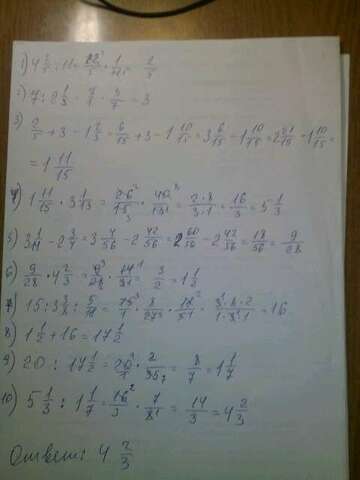 1) 4 2/5 : 11 = 22/5 · 1/11 = 2/5
2) 7 : 2 1/3 = 7/1 · 3/7 = 3
3) 2/5 + 3 - 1 2/3 = 6/15 + 3 - 1 10/15 = 3 6/15 - 1 10/15 = 2 21/15 - 1 10/15 =
= 1 11/15
4) 1 11/15 · 3 1/13 = 26/15 · 40/13 = 2·8/3·1 = 16/3 = 5 1/3
5) 3 1/14 - 2 3/4 = 3 4/56 - 2 42/56 = 2 60/56 - 2 42/56 = 18/56 = 9/28
6) 9/28 · 4 2/3 = 9/28 · 14/3 = 3/2 = 1 1/2
7) 15 : 3 3/8 : 5/18 = 15/1 · 8/27 · 18/5 = 3·8·2/1·3·1 = 16
8) 1 1/2 + 16 = 17 1/2
9) 20 : 17 1/2 = 20/1 · 2/35 = 8/7 = 1 1/7
10) 5 1/3 : 1 1/7 = 16/3 · 7/8 = 14/3 = 4 2/3
Ответ: 4 2/3